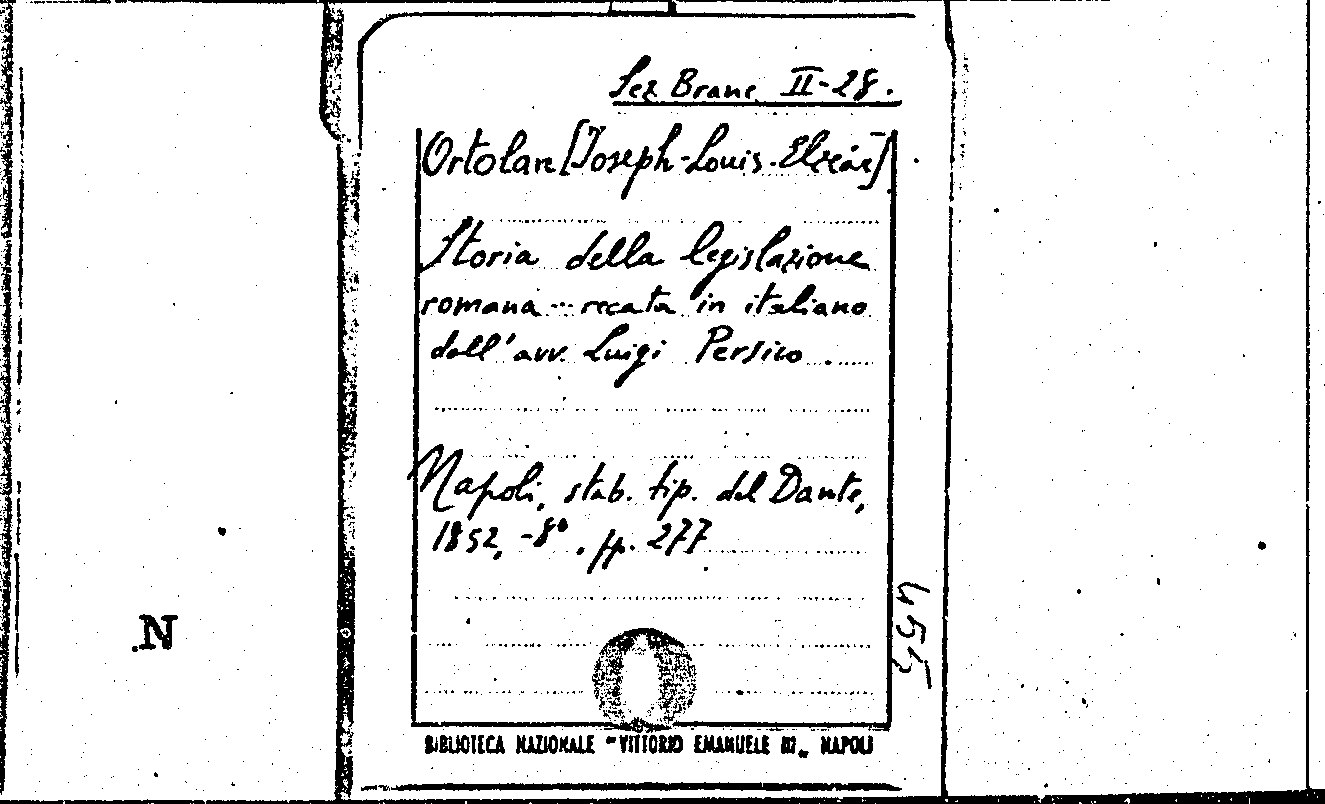 Sez Branc. II-28.
Ortolan [Joseph-Louis-Elzéar]
Storia della legislazione
romana... recata in italiano
dall'avv. Luigi Persico.
Napoli, stab. tip. del Dante,
1852, -8°. pp. 277
455
.N
BIBLIOTECA NAZIONALE "VITTORIO EMANUELE III" NAPOLI